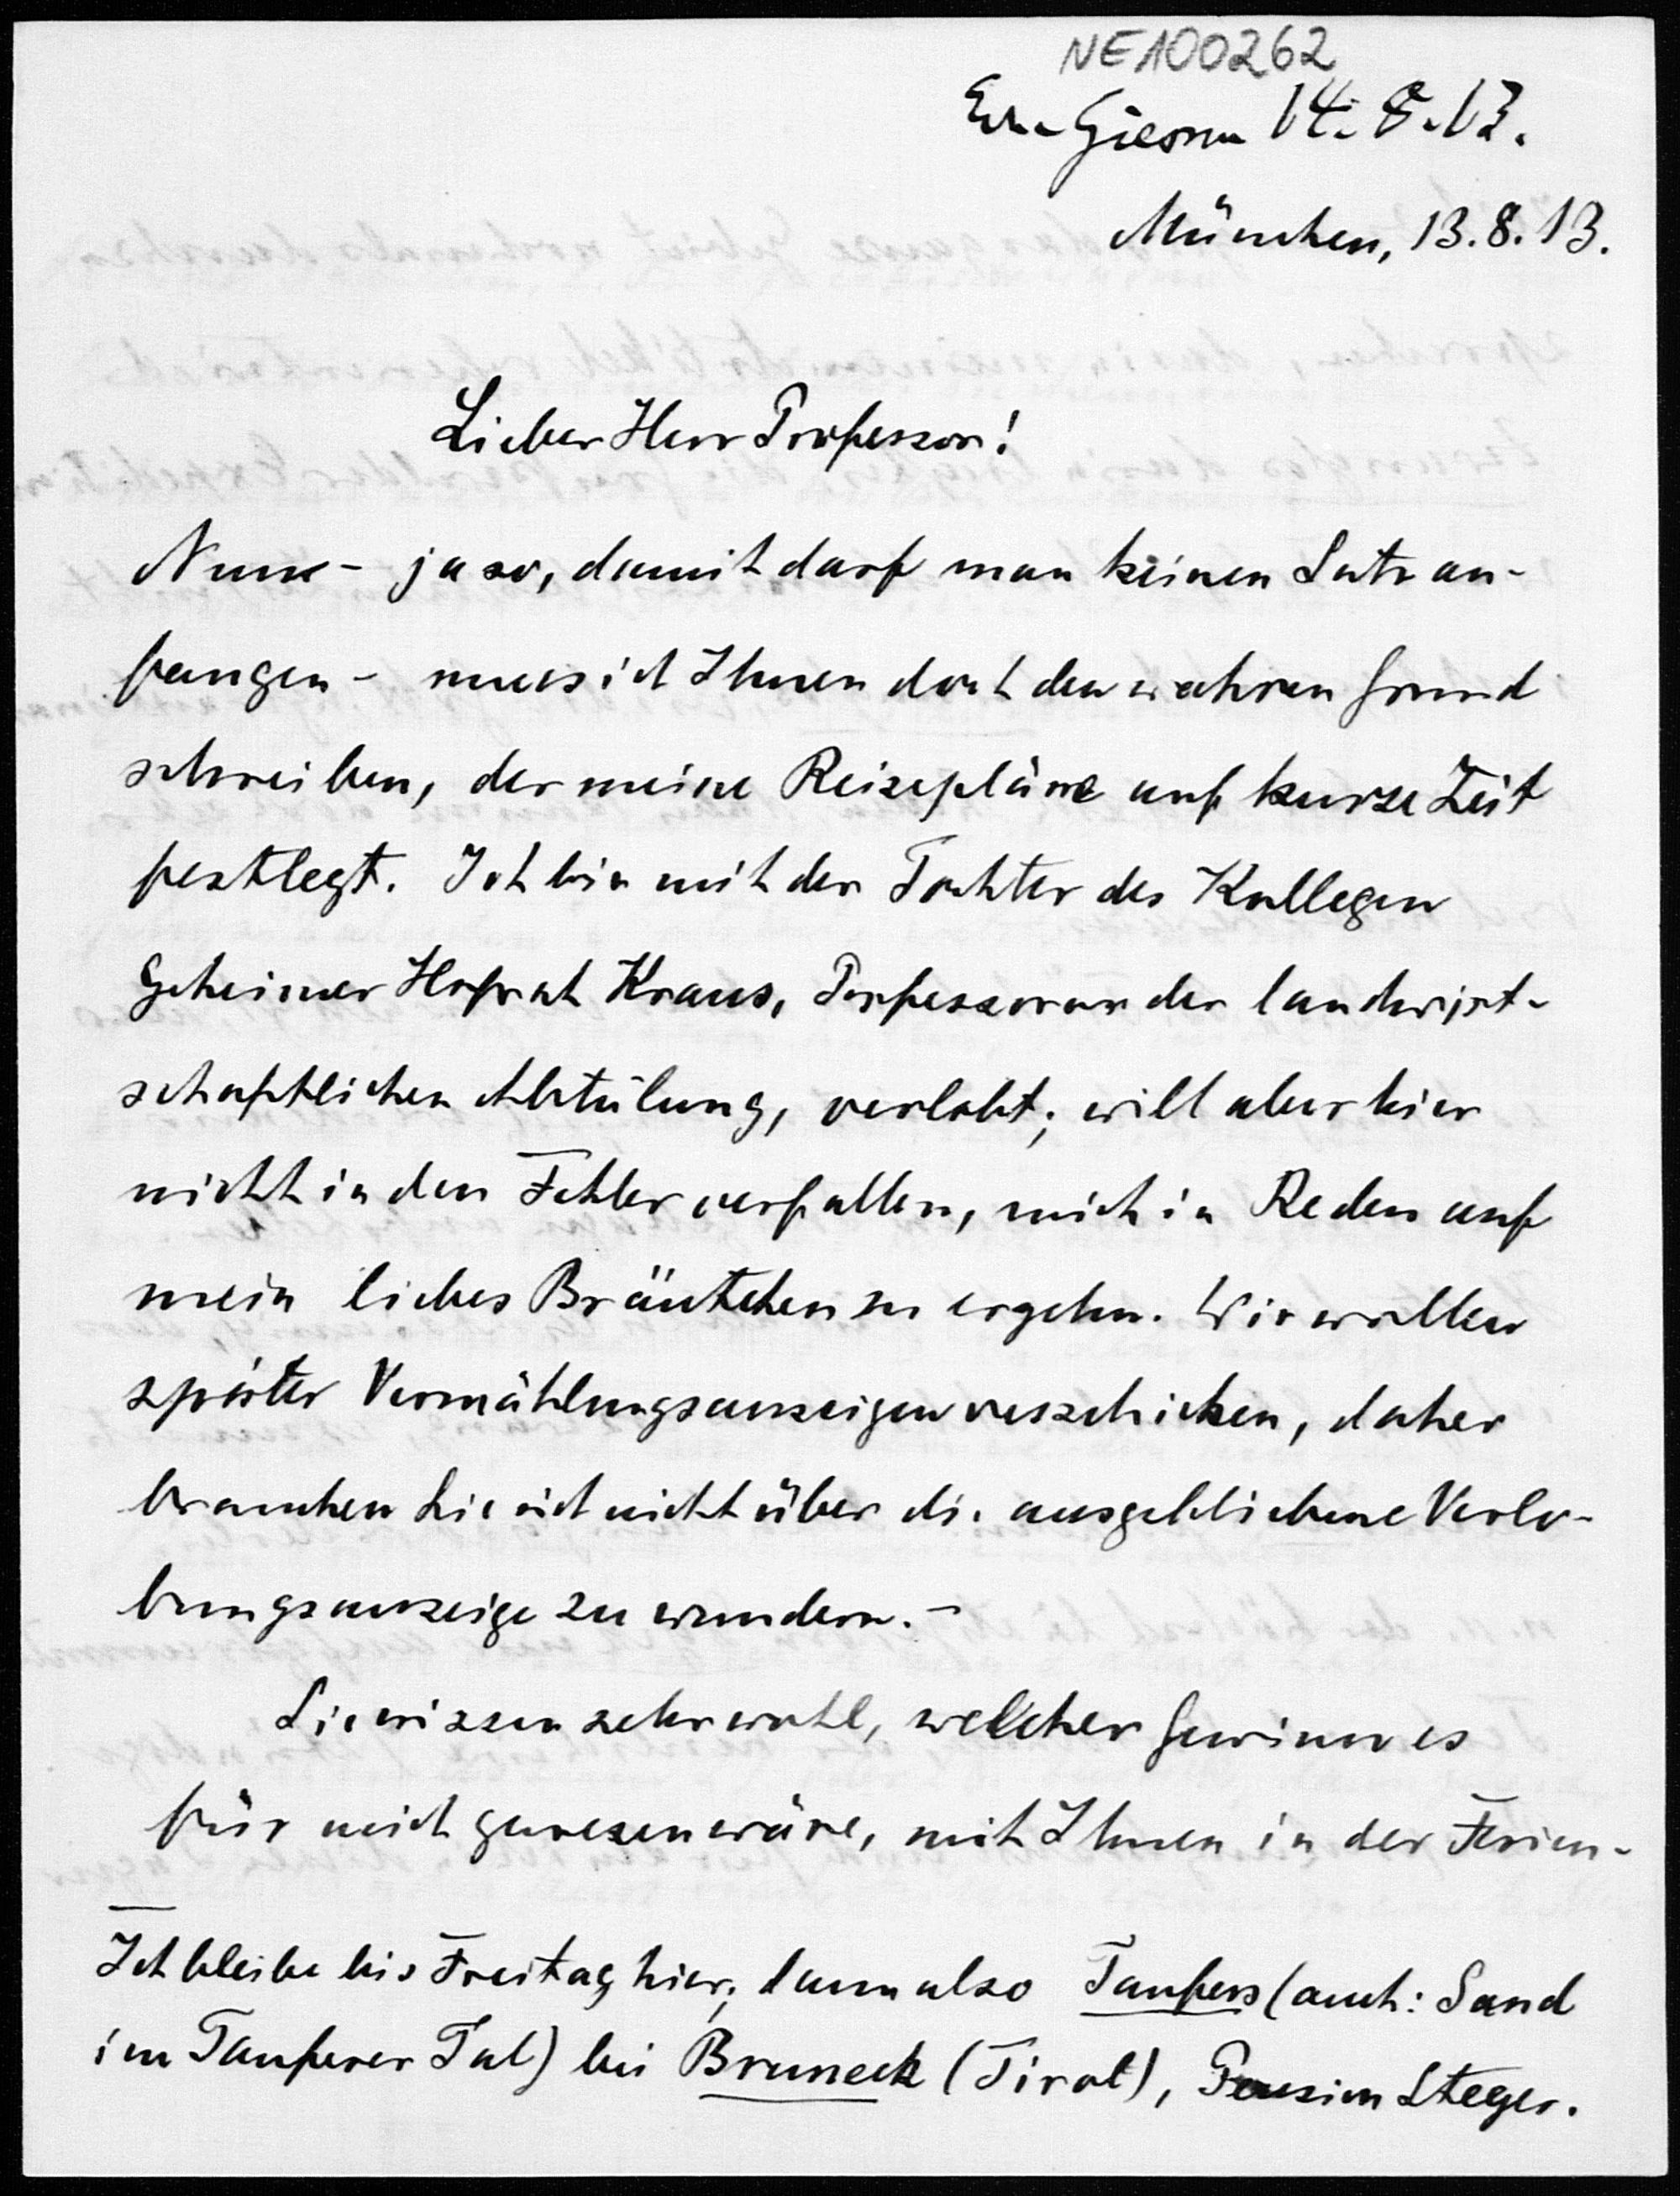 NE100262
Giessen 14.8.13.
München, 13.8.13.
Lieber Herr Professor!
Nun - ja so, damit darf man keinen Satz an-
fangen - muss ich Ihnen doch den wahren Grund
schreiben, der meine Reisepläne auf kurze Zeit
festlegt. Ich bin mit der Tochter des Kollegen
Geheimer Hofrat Kraus, Professor an der landwirt-
schaftlichen Abteilung, verlobt; will aber hier
nicht in den Fehler verfallen, mich in Reden auf
mein liebes Bräutchen zu ergehn. Wir wollen
später Vermählungsanzeigen verschicken, daher
brauchen Sie sich nicht über die ausgebliebene Verlo-
bungsanzeige zu wundern. -
Sie wissen sehr wohl, welcher Gewinn es
für mich gewesen wäre, mit Ihnen in der Ferien-
Ich bleibe bis Freitag hier; dann also Taufers (auch: Sand
im Tauferer Tal) bei Bruneck (Tirol), Pension Steger.